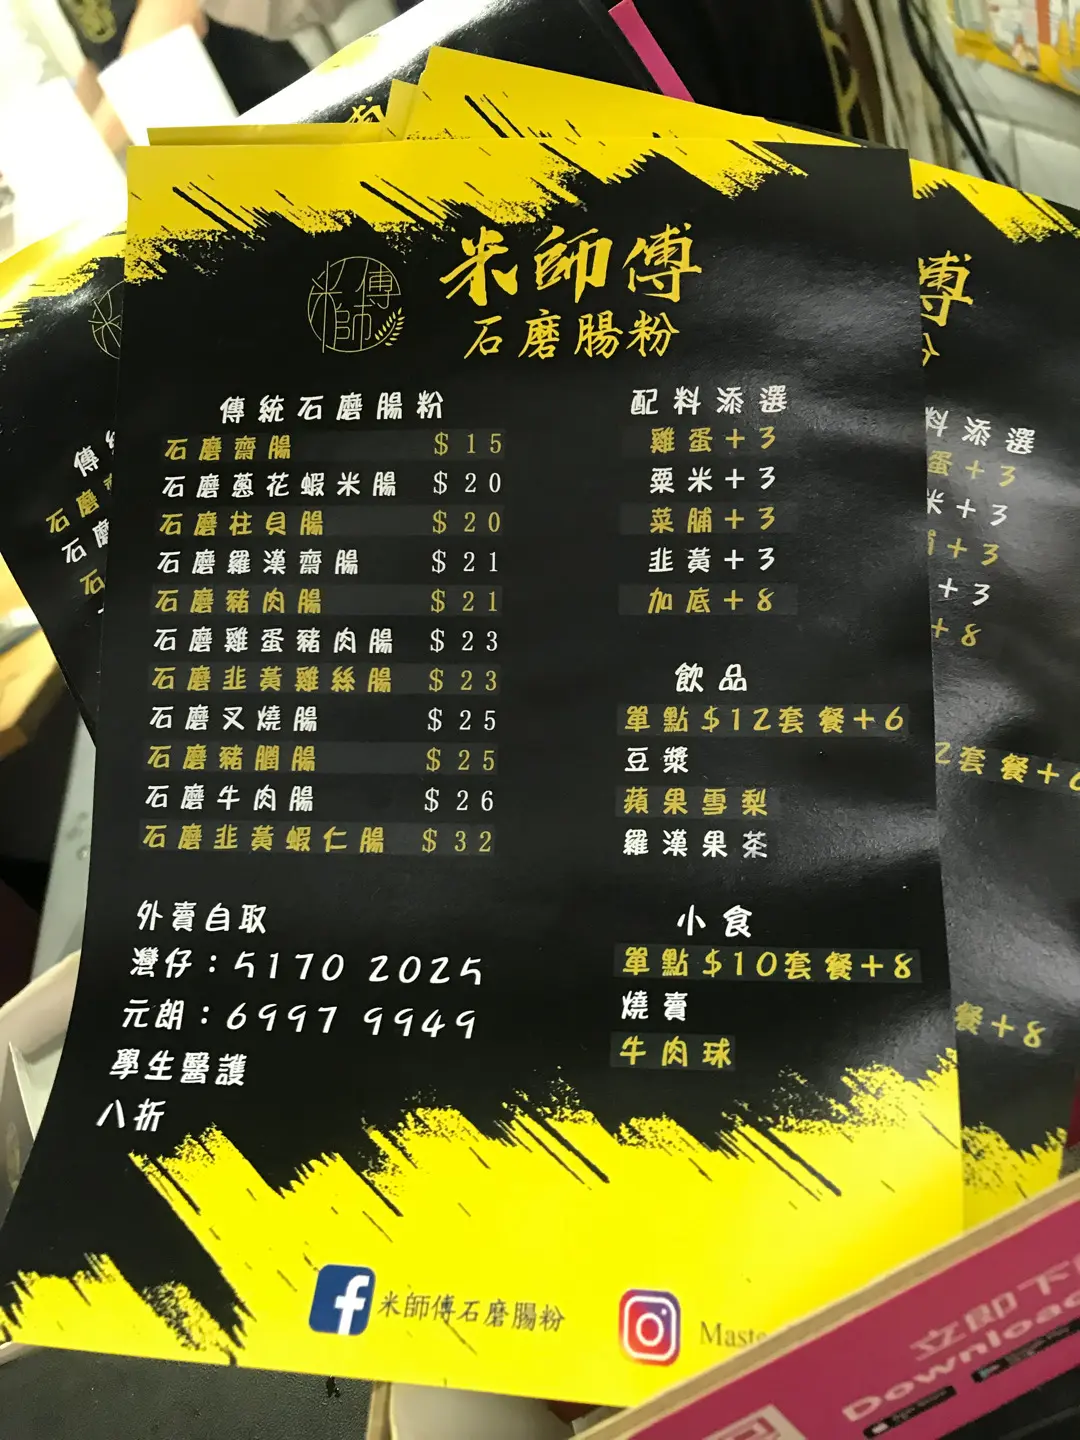 米師傅
米師傅
石磨腸粉
傳統石磨腸粉
石磨齋腸 $15
石磨蔥花蝦米腸 $20
石磨柱貝腸 $20
石磨羅漢齋腸 $21
石磨豬肉腸 $21
石磨雞蛋豬肉腸 $23
石磨韭黃雞絲腸 $23
石磨叉燒腸 $25
石磨豬膶腸 $25
石磨牛肉腸 $26
石磨韭黃蝦仁腸 $32
外賣自取
灣仔：5170 2025
元朗：6997 9949
學生醫護
八折
配料添選
雞蛋+3
粟米+3
菜脯+3
韭黃+3
加底+8
飲品
單點$12套餐+6
豆漿
蘋果雪梨
羅漢果茶
小食
單點$10套餐+8
燒賣
牛肉球
米師傅石磨腸粉
Maste
傅
粉
料添選
蛋+3
米+3
脯+3
+3
+8
2套餐+6
餐+8
傳統
石磨
石磨
石
立即下
Download